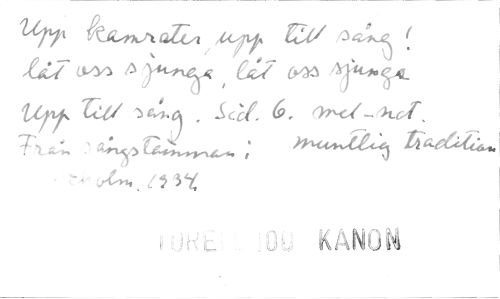 Upp kamrater, upp till sång!
låt oss sjunga, låt oss sjunga
Upp till sång. Sid. 6. mel-not.
Från sångstämman i muntlig tradition
holm, 1934.
100 KANON